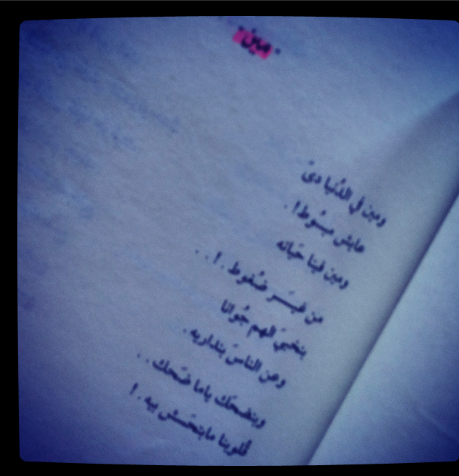 مين
ومين في الدُّنيا دىَ
عايش مبسُوط!.
ومين فينا حَياته
من غيَـر ضُغوط.!..
بنخبيَ الهم جُوانا
وعن الناسَ بنداريه.
وبنضحَك ياما ضَحك..
قُلوبنا مابتحَسش بيه.!